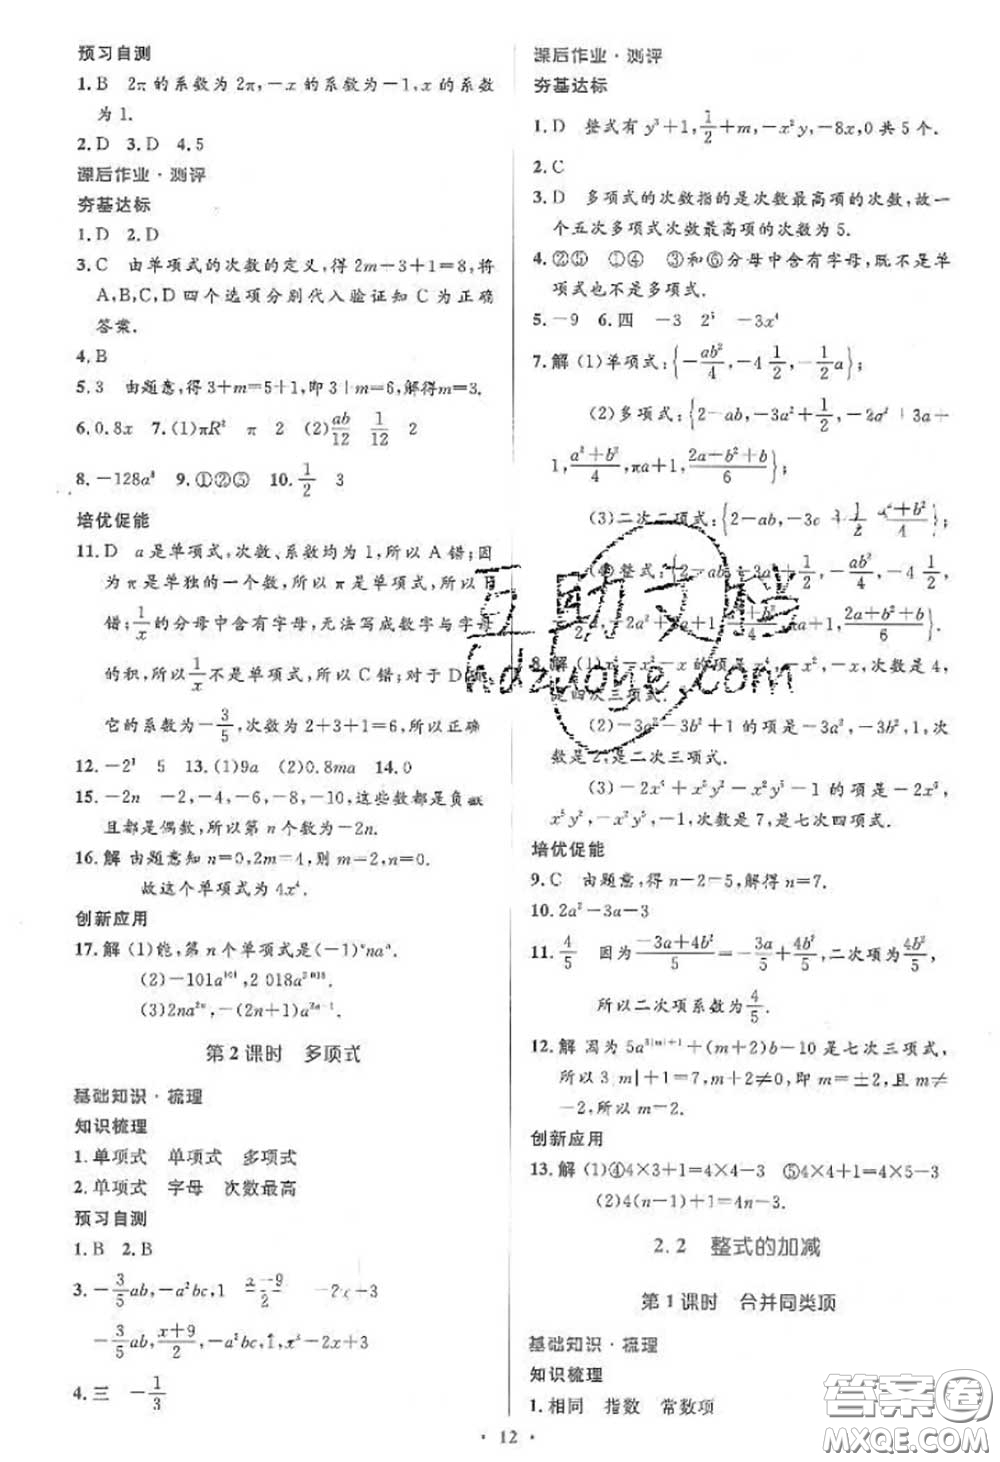 预习自测
1.B 2π的系数为2π,-x的系数为-1,x的系数
为1.
2.D 3.D 4.5
课后作业·测评
夯基达标
1.D 2.D
3.C 由单项式的次数的定义,得2m-3+1=8,将
A,B,C,D四个选项分别代入验证知C为正确
答案.
4.B
5.3 由题意,得3+m=5+1,即3+m=6,解得m=3.
6.0.8x 7.(1)πR² π 2 (2)ab/12 1/12 2
8.-128a⁸ 9.①②⑤ 10.1/2 3
培优促能
11.D a是单项式,次数、系数均为1,所以A错;因
为π是单独的一个数,所以π是单项式,所以B
错;1/x的分母中含有字母,无法写成数字与字母
的积,所以1/x不是单项式,所以C错;对于D
它的系数为-3/5,次数为2+3+1=6,所以正确
12. 5 13.(1)9a (2)0.8ma 14.0
15.-2n -2,-4,-6,-8,-10,这些数都是负
且都是偶数,所以第n个数为-2n.
16.解 由题意知n=0,2m=4,则m=2,n=0.
故这个单项式为4x⁴.
创新应用
17.解 (1)能,第n个单项式是(-1)ⁿnaⁿ.
(2)-101a¹⁰¹,2 018a²⁰¹⁸.
(3)2na²ⁿ,-(2n+1)a
第2课时 多项式
基础知识·梳理
知识梳理
1.单项式 单项式 多项式
2.单项式 字母 次数最高
预习自测
1.B 2.B
3.-3/5ab,-a²bc,1
-3/5ab,x+9/2,-a²bc,1,x³-2x+3
4.三 -1/3
课后作业·测评
夯基达标
1.D 整式有y³+1,1/2+m,-x²y,-8x,0共5个.
2.C
3.D 多项式的次数指的是次数最高项的次数,故一
个五次多项式次数最高项的次数为5.
4.②⑤ ①④ ③和⑥分母中含有字母,既不是单
项式也不是多项式.
5.-9 6.四 -3 2⁵ -3x⁴
7.解 (1)单项式:{-ab²/4,-4 1/2,-1/2a};
(2)多项式:{2-ab,-3a²+1/2,-2a²+3a+
1,a²+b²/4,πa+1,2a+b²+b/6};
(3)二次二项式:{2-ab,-3
(4)整式:{2-ab,-3a²+1/2,-ab²/4,-4 1/2,
-2a²+3a+
8.解 (1)x⁴-x²-x的项是x⁴,-x²,-x,次数是4,
是四次三项式.
(2)-3a²-3b²+1的项是-3a²,-3b²,1,次
数是2,是二次三项式.
(3)-2x⁵+x⁵y²-x-1的项是-2x⁵,
x⁵y²,-x,-1,次数是7,是七次四项式.
培优促能
9.C 由题意,得n-2=5,解得n=7.
10.2a²-3a-3
11.4/5 因为-3a+4b²/5=-3a/5+4b²/5,二次项为4b²/5,
所以二次项系数为4/5.
12.解 因为5a³|m|+1+(m+2)b-10是七次三项式,
所以3|m|+1=7,m+2≠0,即m=±2,且m≠
-2,所以m=2.
创新应用
13.解 (1)④4×3+1=4×4-3 ⑤4×4+1=4×5-3
(2)4(n-1)+1=4n-3
2.2 整式的加减
第1课时 合并同类项
基础知识·梳理
知识梳理
1.相同 指数 常数项
· 12 ·
互助文档
hdzuone.com
答案圈
MXQE.COM